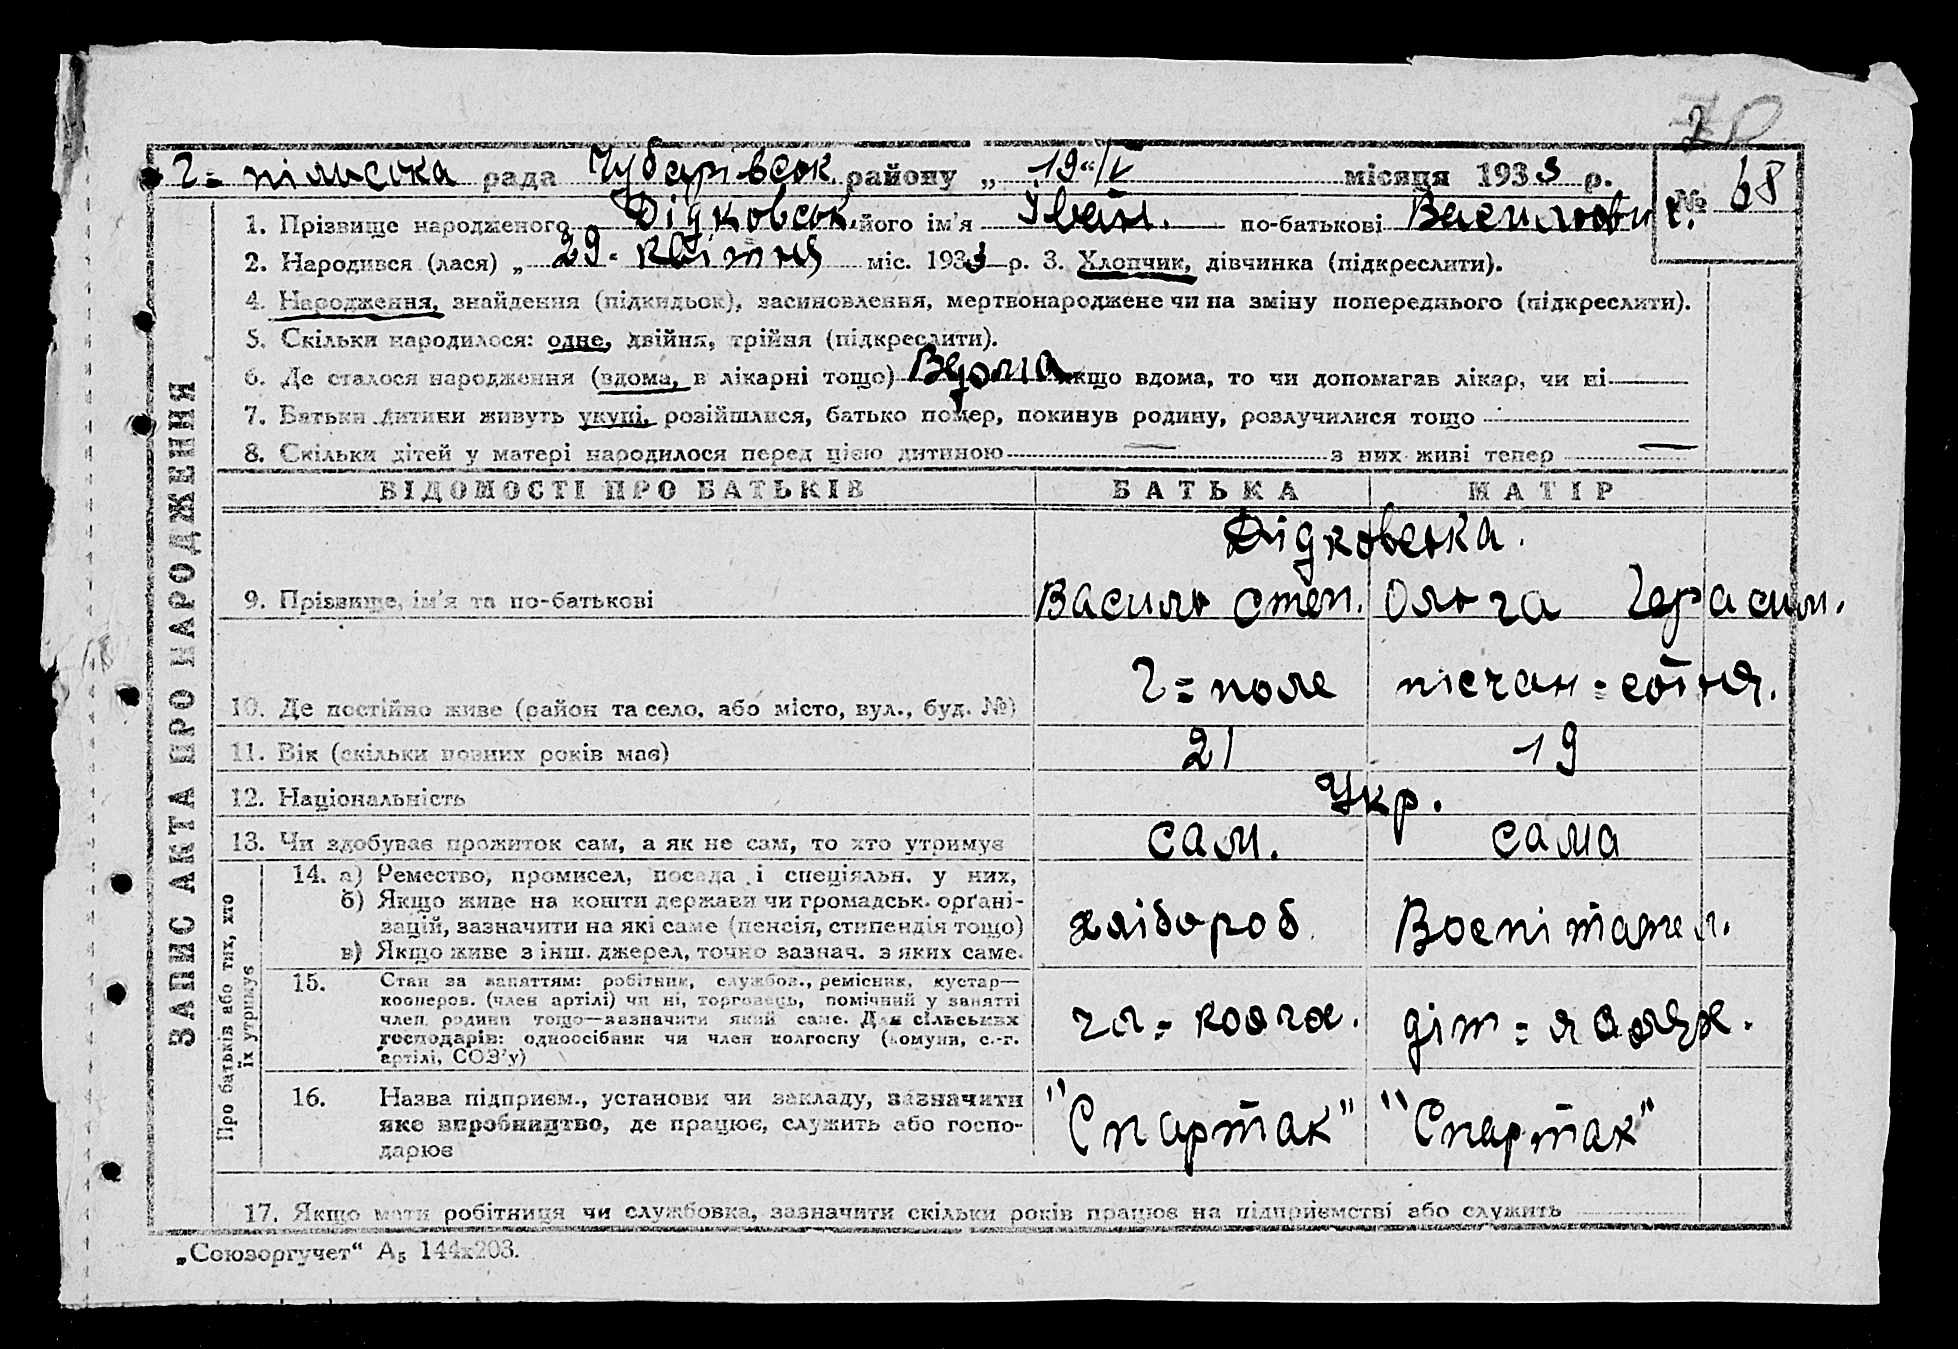 Г=пільська рада Чубарівськ. району „ 19"/V місяця 1933 р.
№ 68
1. Прізвище народженого Дідковськ. його ім'я Іван. по-батькові Василович.
2. Народився (лася) „ 29. квітня міс. 1933 р. 3. Хлопчик, дівчинка (підкреслити).
4. Народження, знайдення (підкидьок), засиновлення, мертвонароджене чи на зміну попереднього (підкреслити).
5. Скільки народилося: одне, двійня, трійня (підкреслити).
6. Де сталося народження (вдома, в лікарні тощо) Вдома якщо вдома, то чи допомагав лікар, чи ні
7. Батьки дитини живуть укупі, розійшлися, батько помер, покинув родину, розлучилися тощо
8. Скільки дітей у матері народилося перед цією дитиною — з них живі тепер —
ЗАПИС АКТА ПРО НАРОДЖЕННЯ
ВІДОМОСТІ ПРО БАТЬКІВ БАТЬКА МАТІР
Дідковська.
9. Прізвище, ім'я та по-батькові Василь Степ. Ольга Герасим.
10. Де постійно живе (район та село, або місто, вул., буд. №) Г=поле
11. Вік (скільки повних років має) 21 19
12. Національність Укр.
13. Чи здобуває прожиток сам, а як не сам, то хто утримує сам. сама
Про батьків або тих, хто
їх утримує
14. а) Ремество, промисел, посада і спеціяльн. у них,
б) Якщо живе на кошти держави чи громадськ. орґані-
зацій, зазначити на які саме (пенсія, стипендія тощо) хлібороб Воспітател.
в) Якщо живе з інш. джерел, точно зазнач. з яких саме.
15. Стан за заняттям: робітник, службов., ремісник, кустар—
кооперов. (член артілі) чи ні, торговець, помічний у занятті
член родини тощо—зазначити який саме. Для сільських чл=колгос. діт=
господарів: одноосібник чи член колгоспу (комуни, с.-г.
артілі, СОЗ'у)
16. Назва підприєм., установи чи закладу, зазначити
яке виробництво, де працює, служить або госпо- "Спартак" "Спартак"
дарює
17. Якщо мати робітниця чи службовка, зазначити скільки років працює на підприємстві або служить
„Союзоргучет“ А5 144х203.